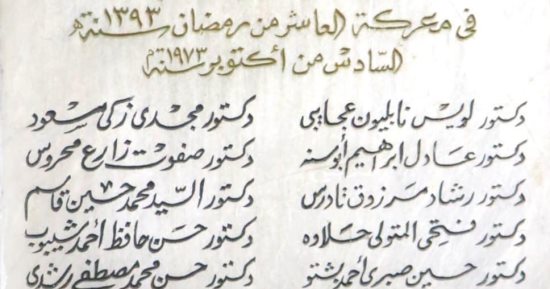 في معركة العاشر من رمضان سنة ١٣٩٣ هـ
السادس من أكتوبر سنة ١٩٧٣ م
دكتور لويس نابليون عجايبي دكتور مجدي زكي مسعود
دكتور عادل ابراهيم أبوسنه دكتور صفوت زارع محروس
دكتور رشاد مرزوق نادرس دكتور السيد محمد حسين قاسم
دكتور فتحي المتولى حلاوه دكتور حسن حافظ أحمد شيبوب
دكتور حسين صبري أحمد بشتو دكتور حسن محمد مصطفى رشدي